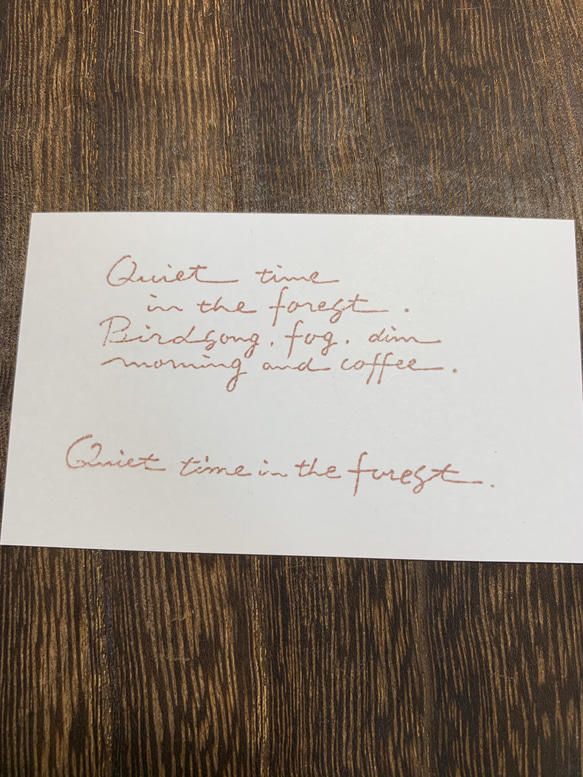 Quiet time
in the forest.
Birdsong, fog, dim
morning and coffee.
Quiet time in the forest.